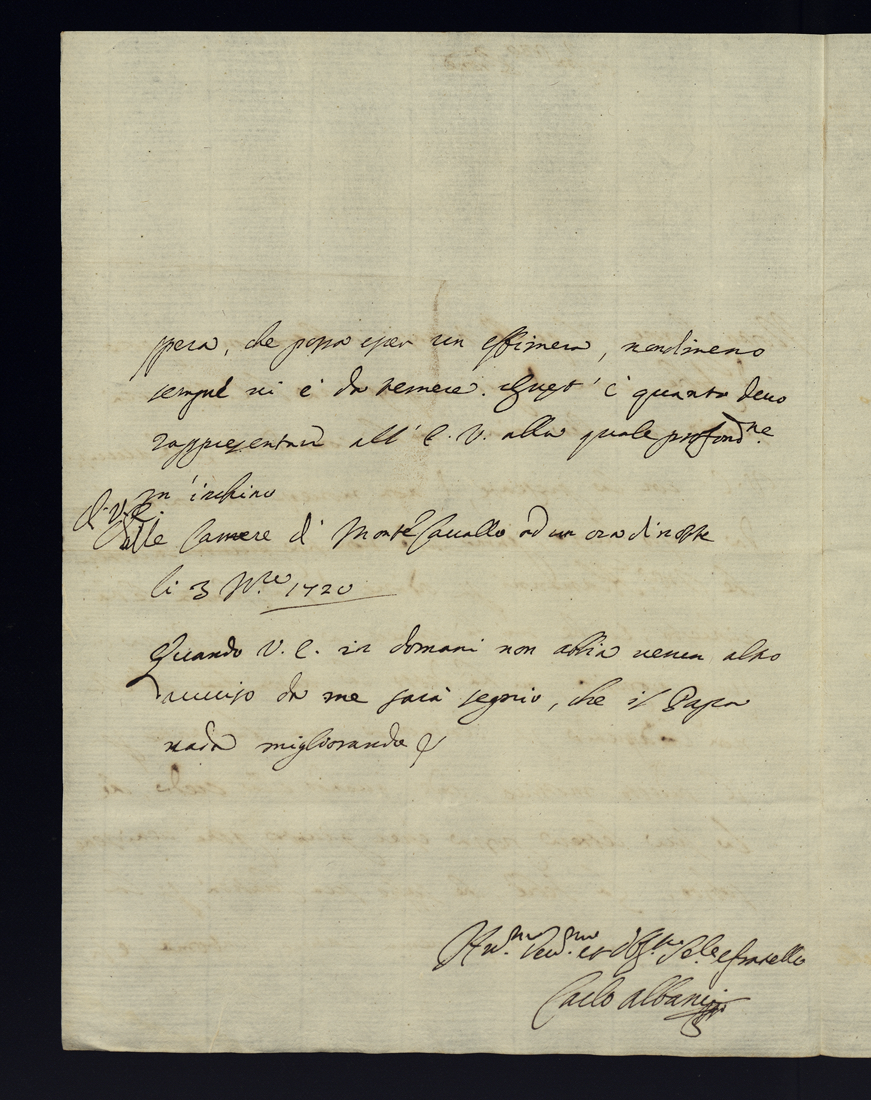 spera, che possa esser un effimera, nondimeno
sempre vi è da temere. Quest' è quanto devo
rappresentare all' E. V. alla quale profond.ne
m'inchino
di V. E.
Dalle Camere di Monte Cavallo ad un ora di notte
li 3 N.re 1720
Quando V. E. in domani non abbia verun altro
avviso da me sarà segnio, che il Papa
vada migliorando
Um.mo Dev.mo et Obl.mo Se.re e fratello
Carlo Albani